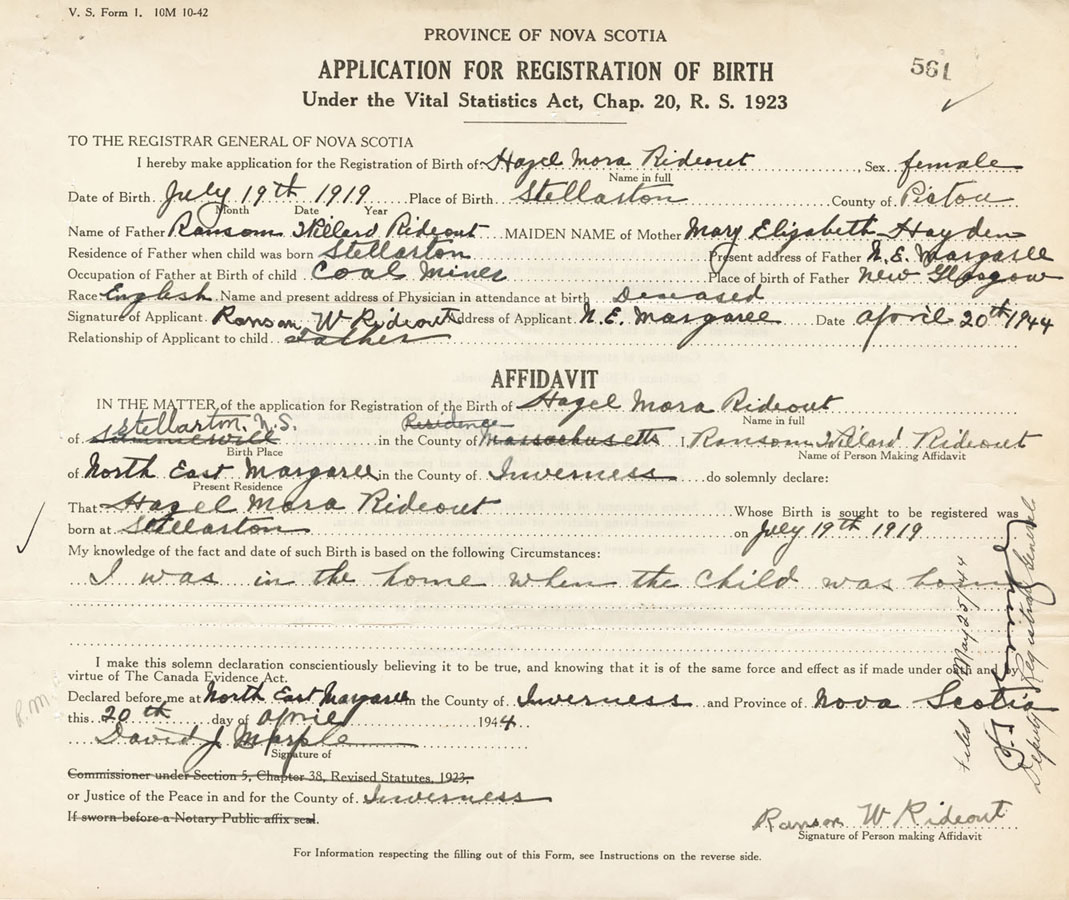 V. S. Form 1. 10M 10-42
PROVINCE OF NOVA SCOTIA
APPLICATION FOR REGISTRATION OF BIRTH
561
Under the Vital Statistics Act, Chap. 20, R. S. 1923
TO THE REGISTRAR GENERAL OF NOVA SCOTIA
I hereby make application for the Registration of Birth of Hazel Mora Rideout Sex female
Name in full
Date of Birth July 19th 1919 Place of Birth Stellarton County of Pictou
Month Date Year
Name of Father Ransom Willard Rideout MAIDEN NAME of Mother Mary Elizabeth Hayden
Residence of Father when child was born Stellarton Present address of Father N.E. Margaree
Occupation of Father at Birth of child Coal Miner Place of birth of Father New Glasgow
Race English Name and present address of Physician in attendance at birth Deceased
Signature of Applicant Ransom W Rideout Address of Applicant N.E. Margaree Date April 20th 1944
Relationship of Applicant to child Father
AFFIDAVIT
IN THE MATTER of the application for Registration of the Birth of Hazel Mora Rideout
Name in full
Stellarton, N.S. Residence
of in the County of Massachusetts I Ransom Willard Rideout
Birth Place Name of Person Making Affidavit
of North East Margaree in the County of Inverness do solemnly declare:
Present Residence
That Hazel Mora Rideout Whose Birth is sought to be registered was
born at Stellarton on July 19th 1919
My knowledge of the fact and date of such Birth is based on the following Circumstances:
I was in the home when the child was born
I make this solemn declaration conscientiously believing it to be true, and knowing that it is of the same force and effect as if made under oath and by
virtue of The Canada Evidence Act.
Declared before me at North East Margaree in the County of Inverness and Province of Nova Scotia
this 20th day of April 1944.
David J Marple
Signature of
Commissioner under Section 5, Chapter 38, Revised Statutes, 1923,
or Justice of the Peace in and for the County of Inverness
If sworn before a Notary Public affix seal.
Ransom W Rideout
Signature of Person making Affidavit
For Information respecting the filling out of this Form, see Instructions on the reverse side.
Filed May 25/44
Deputy Registrar General
R.M.